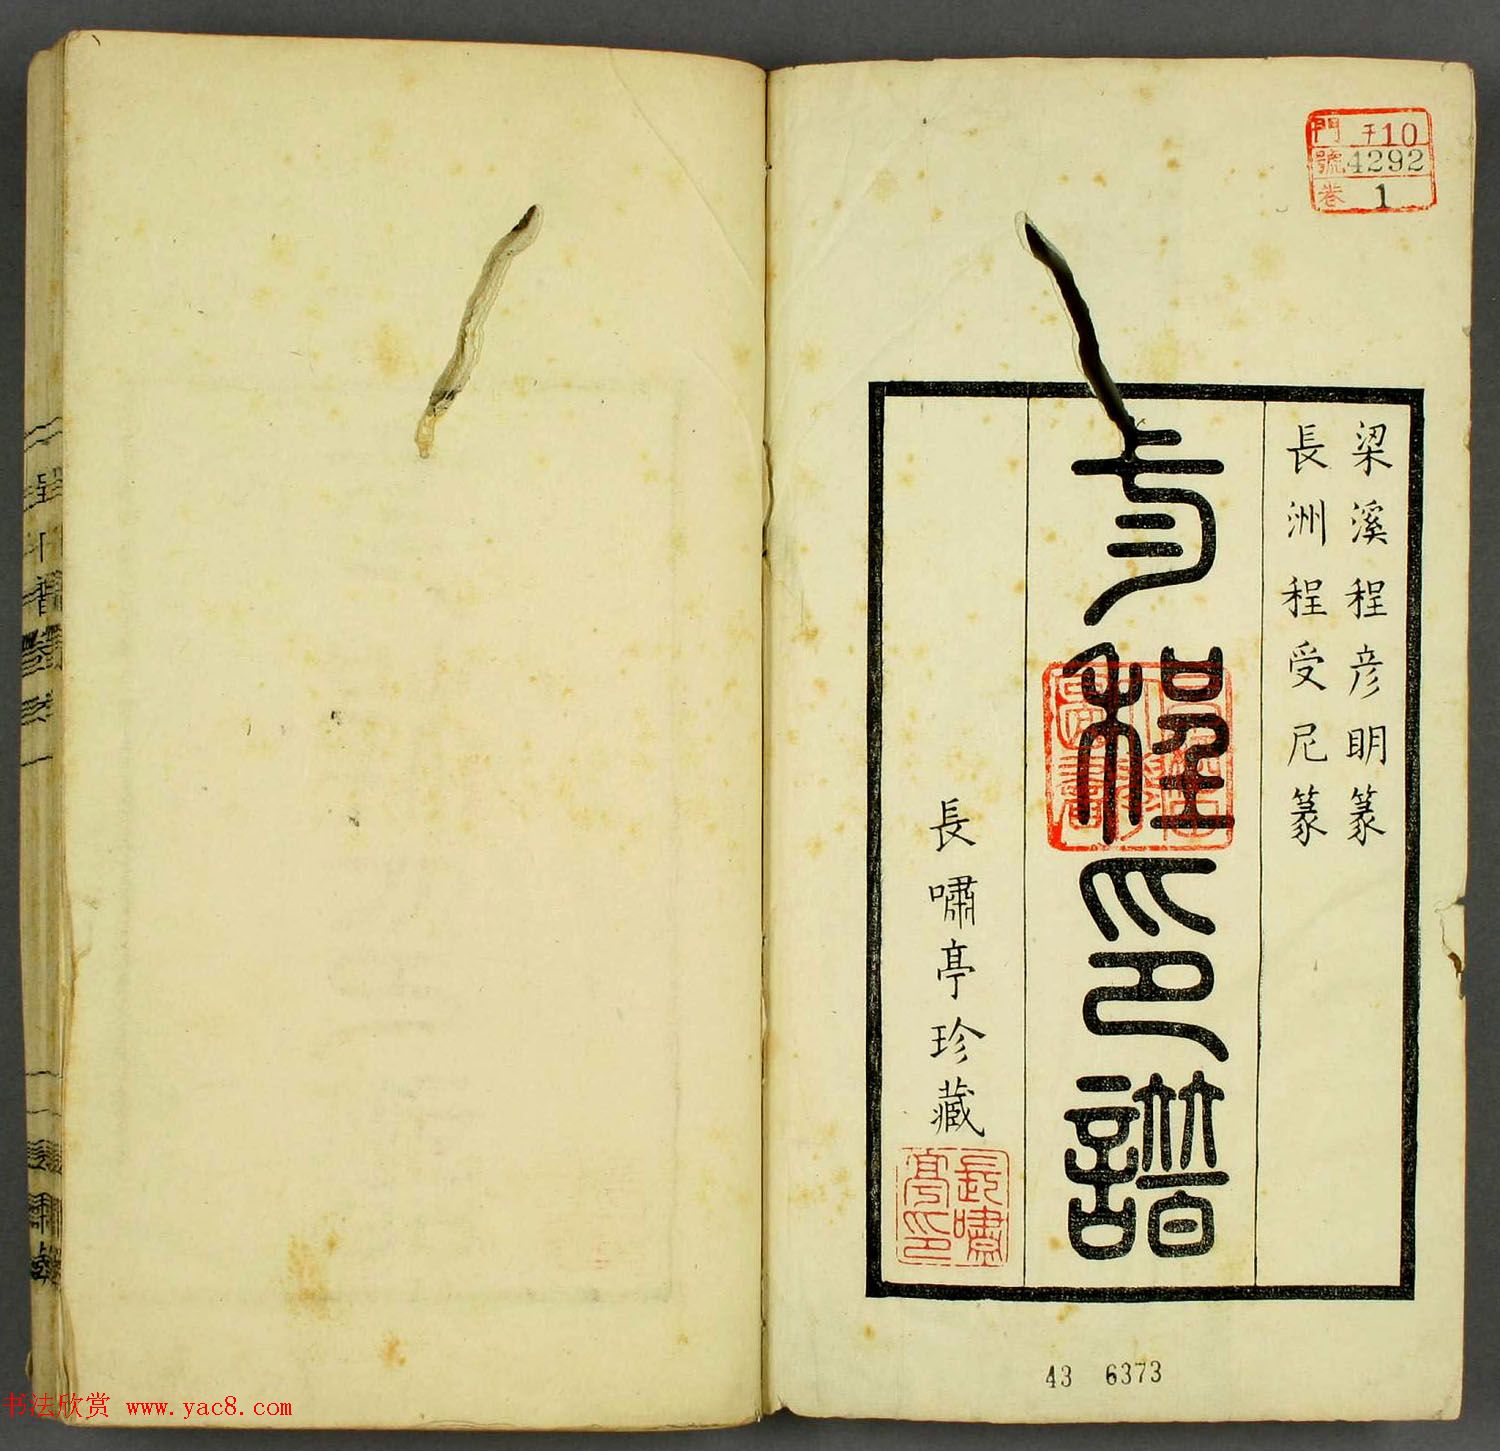 門 チ10
號 4292
卷 1
梁溪程彦明篆
長洲程受尼篆
程印譜
長嘯亭珍藏
長嘯亭印
43 6373
书法欣赏 www.yac8.com